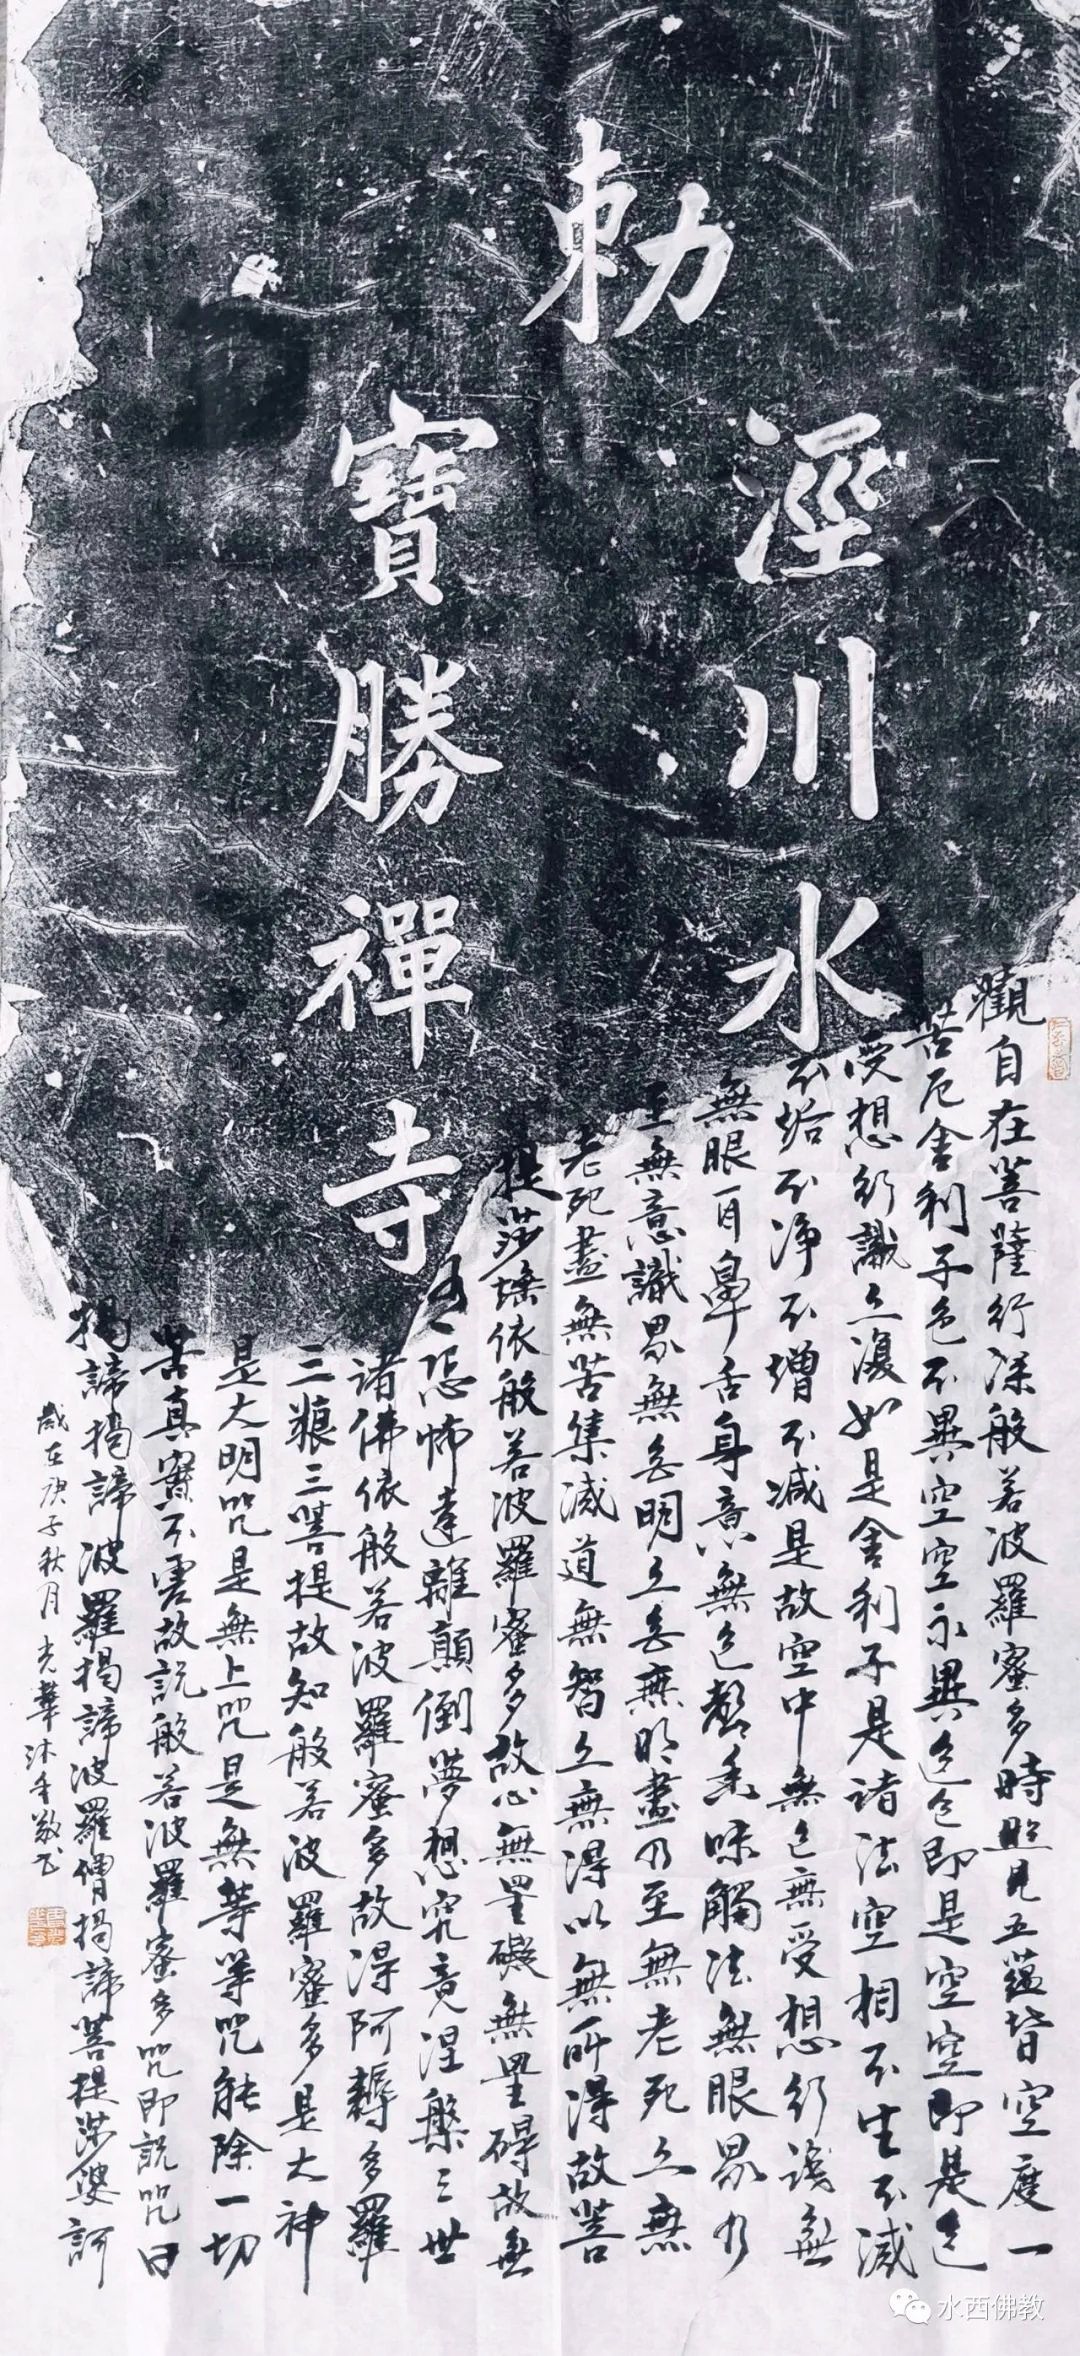 勅
涇川水
寶勝禪寺
觀自在菩薩行深般若波羅蜜多時照見五蘊皆空度一
苦厄舍利子色不異空空不異色色即是空空即是色
受想行識亦復如是舍利子是諸法空相不生不滅
不垢不淨不增不減是故空中無色無受想行識無
無眼耳鼻舌身意無色聲香味觸法無眼界乃
至無意識界無無明亦無無明盡乃至無老死亦無
老死盡無苦集滅道無智亦無得以無所得故菩
提薩埵依般若波羅蜜多故心無罣礙無罣礙故無
有恐怖遠離顛倒夢想究竟涅槃三世
諸佛依般若波羅蜜多故得阿耨多羅
三藐三菩提故知般若波羅蜜多是大神
是大明咒是無上咒是無等等咒能除一切
苦真實不虛故説般若波羅蜜多咒即説咒曰
揭諦揭諦波羅揭諦波羅僧揭諦菩提莎婆訶
歲在庚子秋月光華沐手敬書
水西佛教